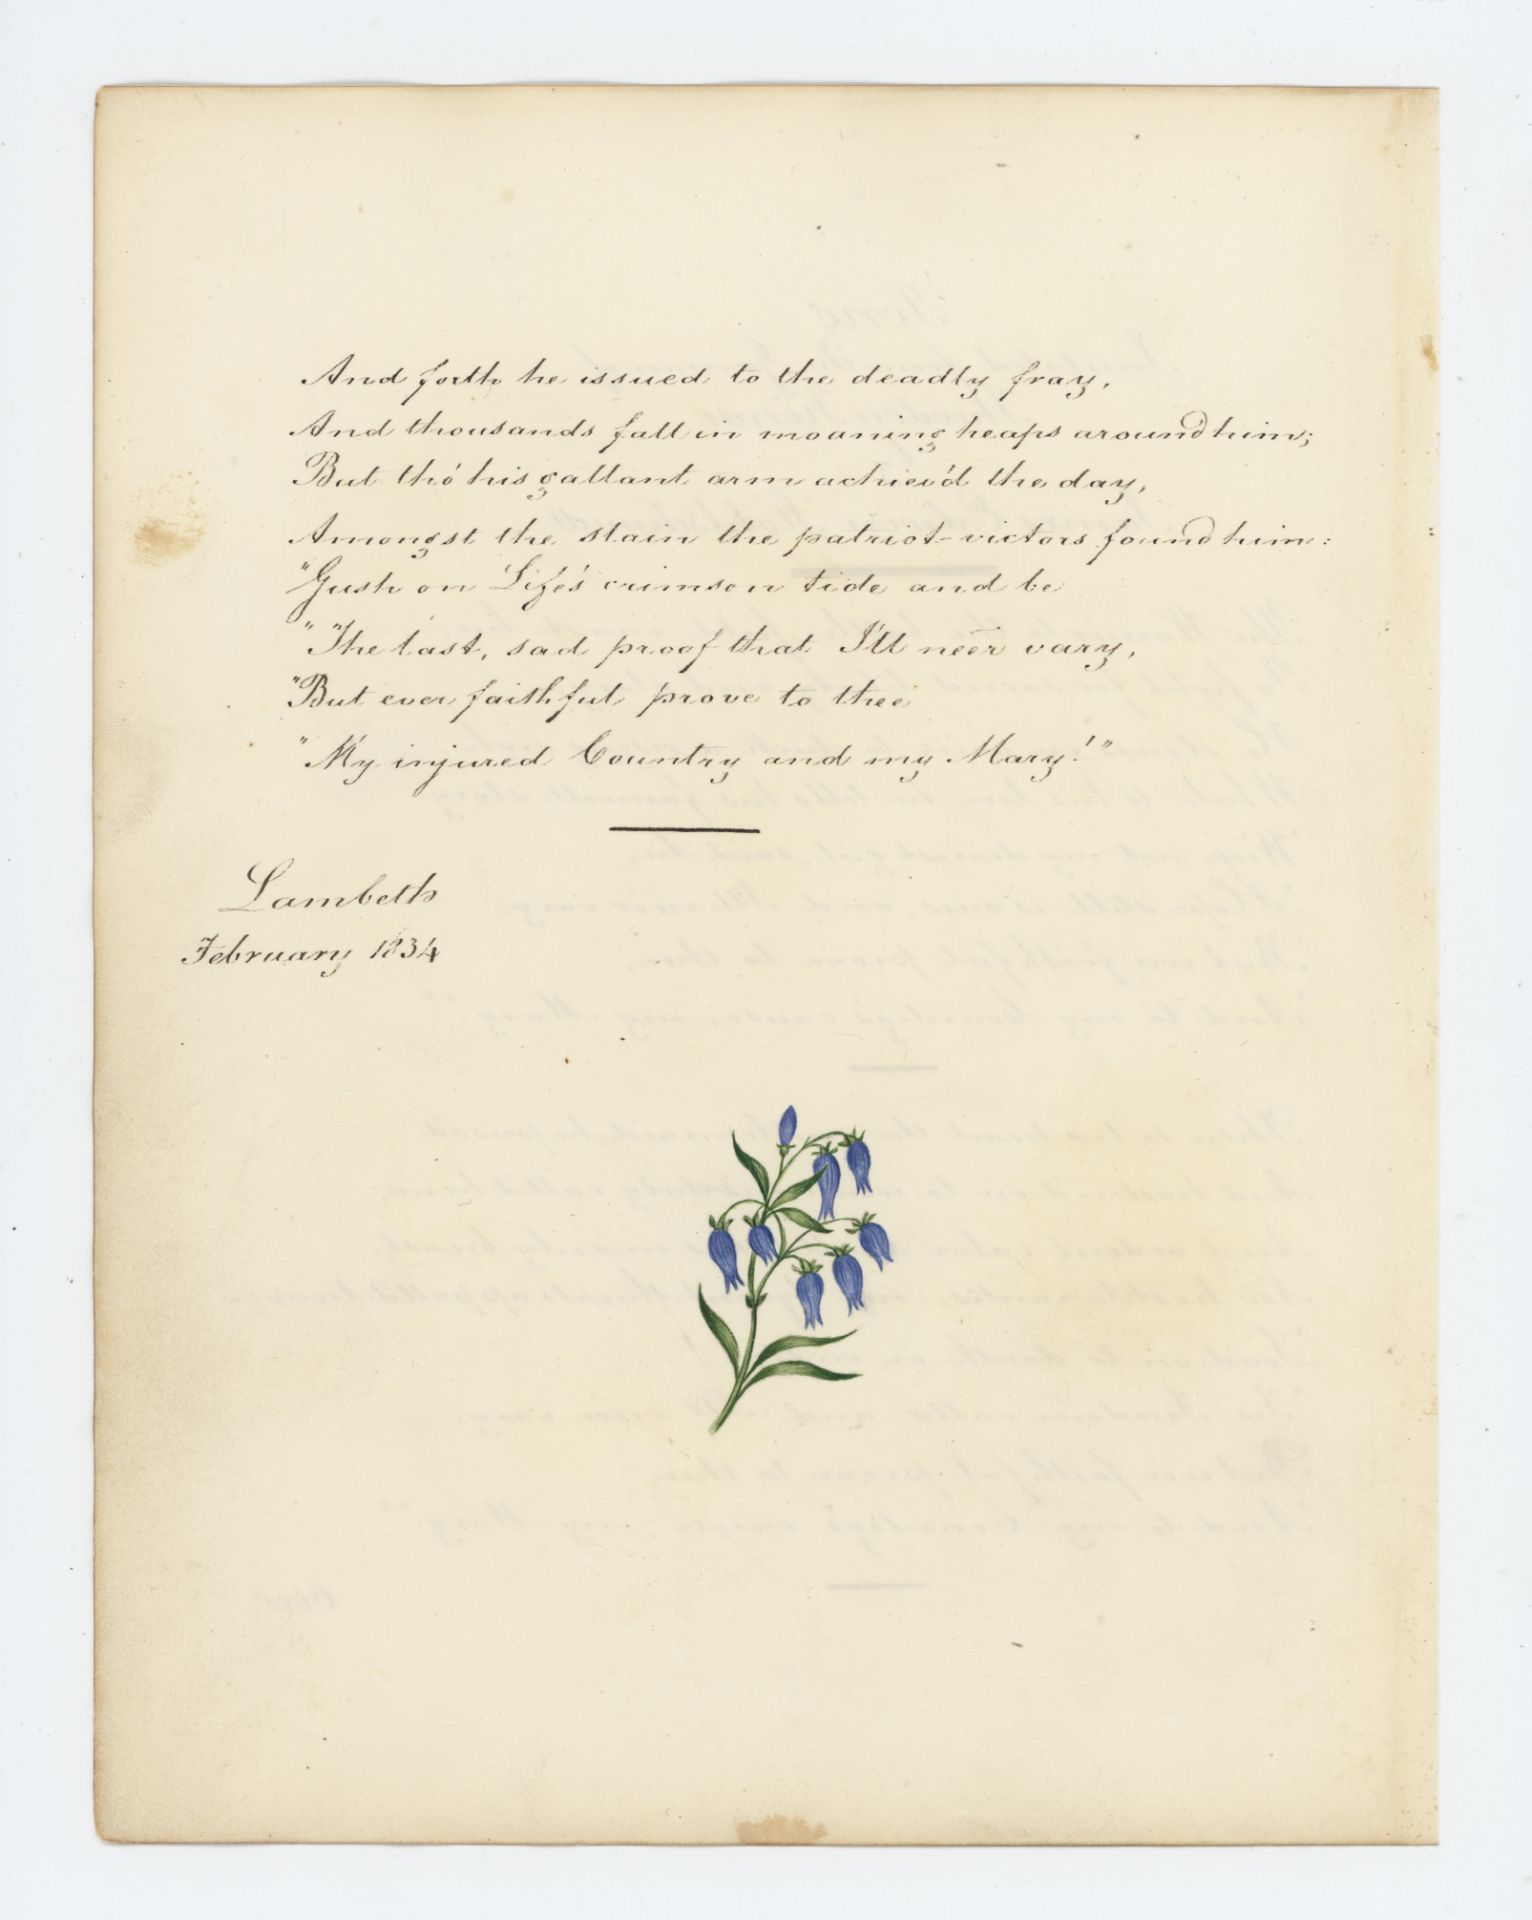 And forth he issued to the deadly fray,
And thousands fall in moaning heaps around him;
But tho' his gallant arm achiev'd the day,
Amongst the slain the patriot-victors found him:
"Gush on Life's crimson tide and be
" "The last, sad proof that I'll ne'er vary,
"But ever faithful prove to thee
" My injured Country and my Mary!"
Lambeth
February 1834